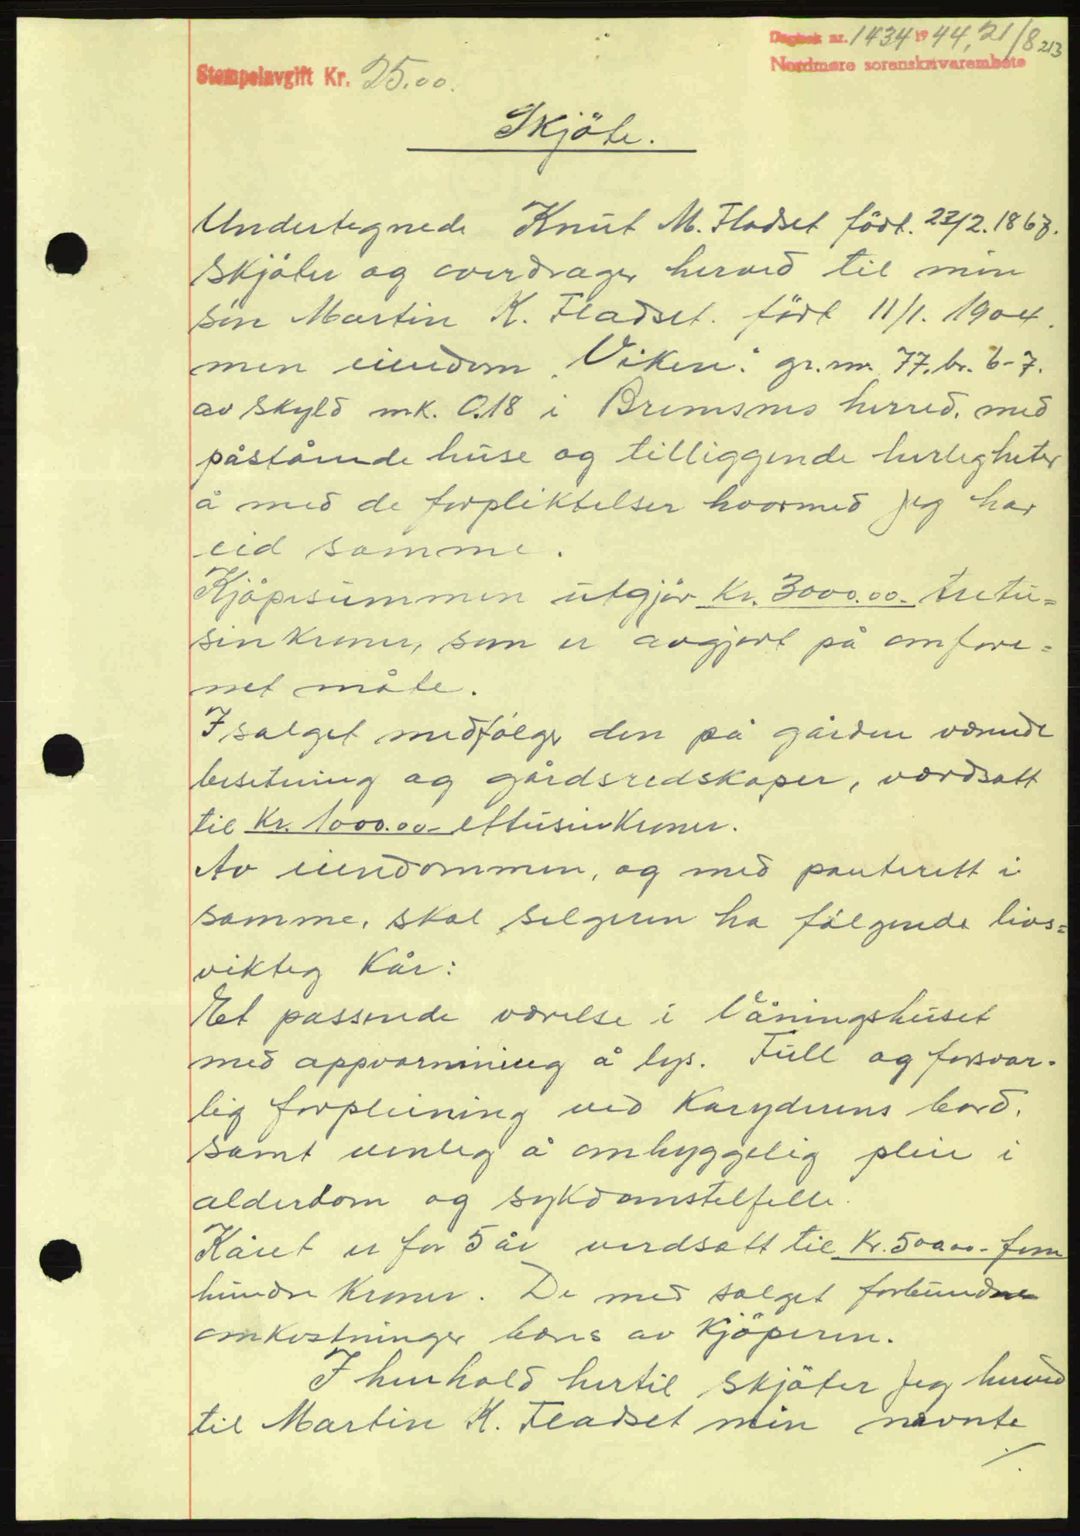 Dagbok nr. 1434 19 44, 21/8 213
Nordmøre sorenskrivarembete
Stempelavgift Kr. 25.00.
Skjöte.
Undertegnede Knut M. Fladset födt. 22/2. 1867.
skjöter og overdrager herved til min
sön Martin K. Fladset. födt 11/1. 1904.
men eiendom "Viken" gr.nr. 77. br. 6-7.
av skyld mk. 0.18 i Bremsnes herred. med
påstående huse og tilliggende herligheter
å med de forpliktelser hvormed jeg har
eid samme.
Kjöpesummen utgjör Kr. 3000.00- tretu=
sin kroner, som er avgjort på omfore=
net måte.
I salget medfölger den på gården værende
besetning og gårdsredskaper, værdsatt
til Kr. 1000.00- ettusinkroner.
Av eiendommen, og med panterett i
samme, skal selgeren ha fölgende livs=
vikteg Kår:
Et passende værelse i våningshuset
med oppvarmning å lys. Full og forsvar-
lig forpleining ved Karyderens bord,
samt venleg å omhyggelig pleie i
alderdom og sykdomstelfelle.
Kåret er for 5 år verdsatt til Kr. 500.00- fem
hundre Kroner. De med salget forbundne
omkostninger bæres av Kjöperen.
I henhold hertil skjöter jeg herved
til Martin K. Fladset min nævnte
./.